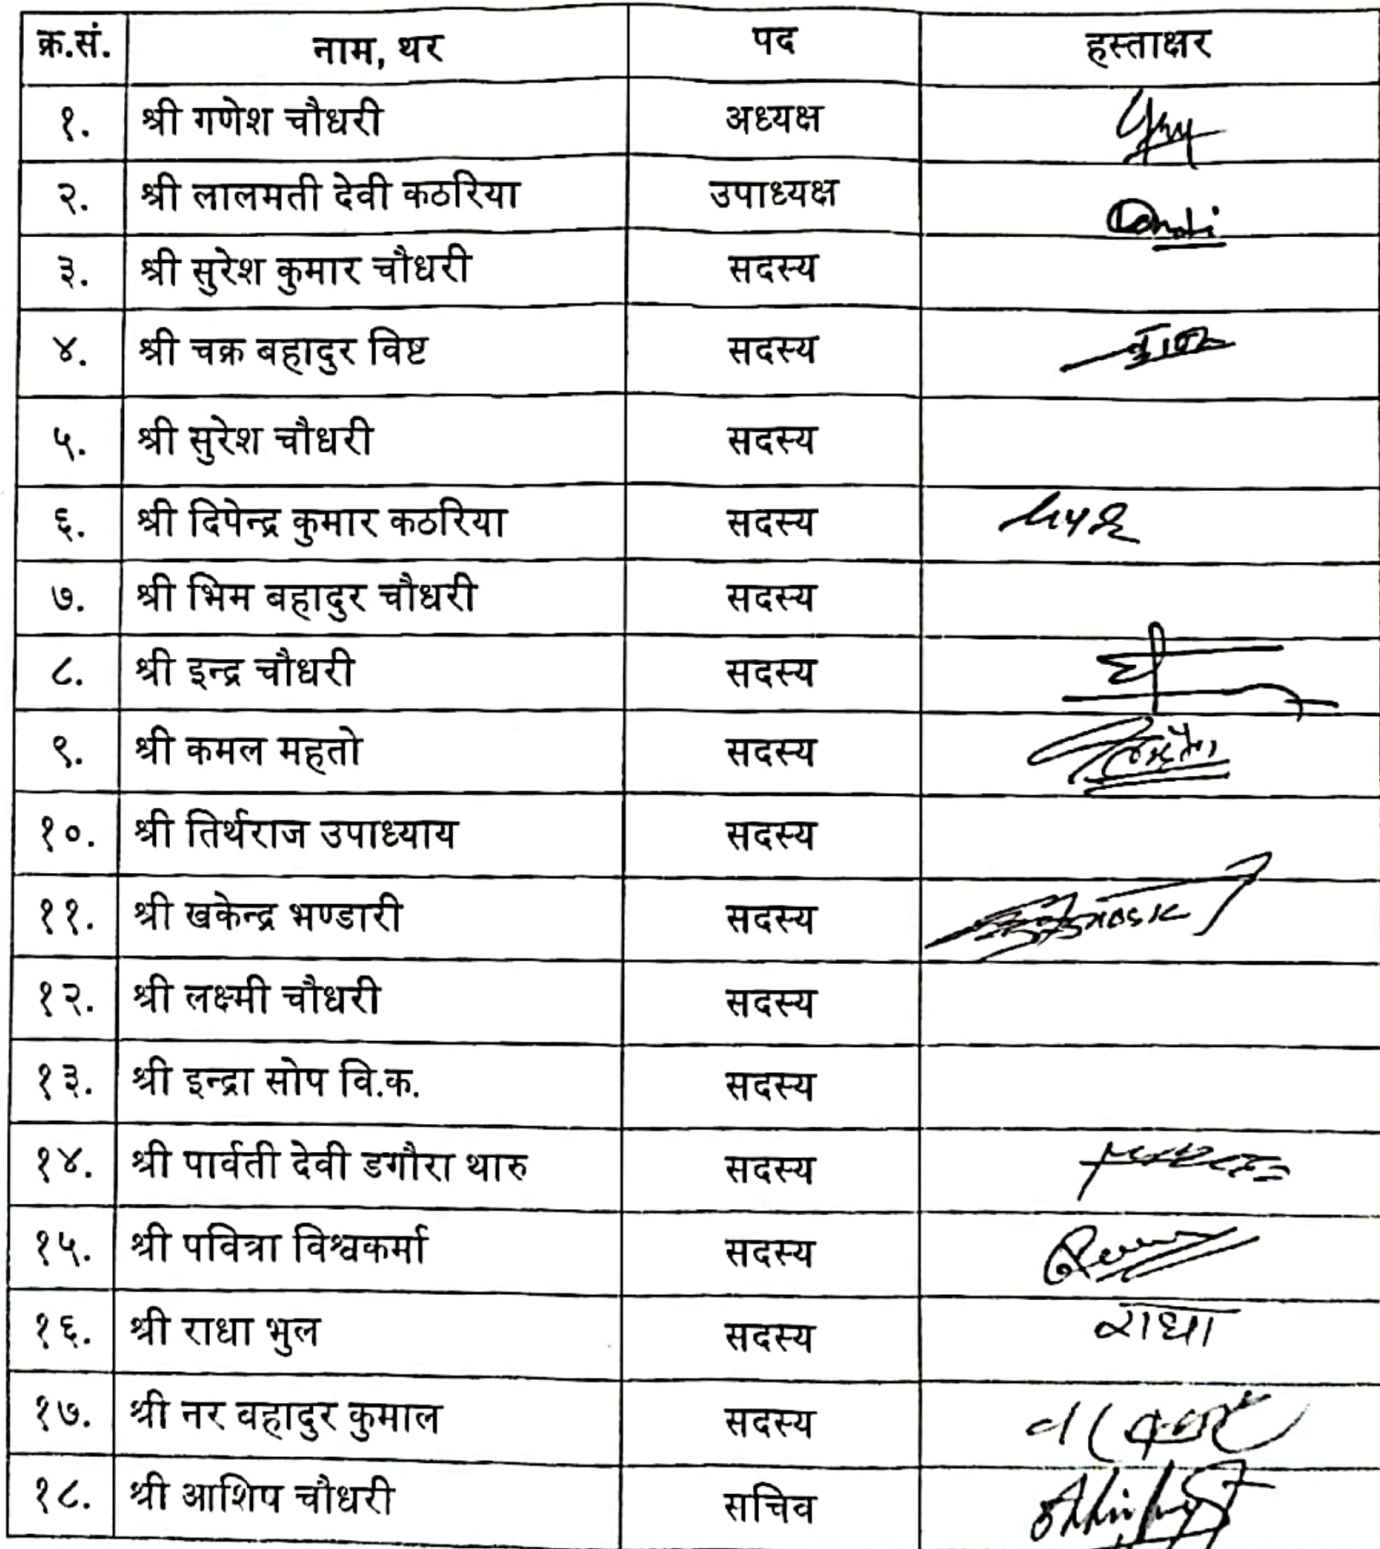 क्र.सं. नाम, थर पद हस्ताक्षर
१. श्री गणेश चौधरी अध्यक्ष
२. श्री लालमती देवी कठरिया उपाध्यक्ष
३. श्री सुरेश कुमार चौधरी सदस्य
४. श्री चक्र बहादुर विष्ट सदस्य
५. श्री सुरेश चौधरी सदस्य
६. श्री दिपेन्द्र कुमार कठरिया सदस्य
७. श्री भिम बहादुर चौधरी सदस्य
८. श्री इन्द्र चौधरी सदस्य
९. श्री कमल महतो सदस्य
१०. श्री तिर्थराज उपाध्याय सदस्य
११. श्री खकेन्द्र भण्डारी सदस्य
१२. श्री लक्ष्मी चौधरी सदस्य
१३. श्री इन्द्रा सोप वि.क. सदस्य
१४. श्री पार्वती देवी डगौरा थारु सदस्य
१५. श्री पवित्रा विश्वकर्मा सदस्य
१६. श्री राधा भुल सदस्य राधा
१७. श्री नर वहादुर कुमाल सदस्य
१८. श्री आशिष चौधरी सचिव